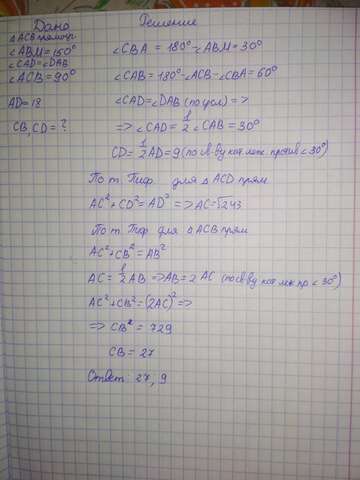 Дано
Решение
△ACB прямоуг.
∠ABM = 150°
∠CAD = ∠DAB
∠ACB = 90°
AD = 18
CB, CD = ?
∠CBA = 180° - ∠ABM = 30°
∠CAB = 180° - ∠ACB - ∠CBA = 60°
∠CAD = ∠DAB (по усл) =>
=> ∠CAD = 1/2 ∠CAB = 30°
CD = 1/2 AD = 9 (по св. ву кат леж. против ∠30°)
По т. Пиф. для △ACD прям
AC² + CD² = AD² => AC = √243
По т. Пиф для △ACB прям
AC² + CB² = AB²
AC = 1/2 AB => AB = 2 AC (по св ву кат леж пр ∠30°)
AC² + CB² = (2AC)² =>
=> CB² = 729
CB = 27
Ответ: 27, 9